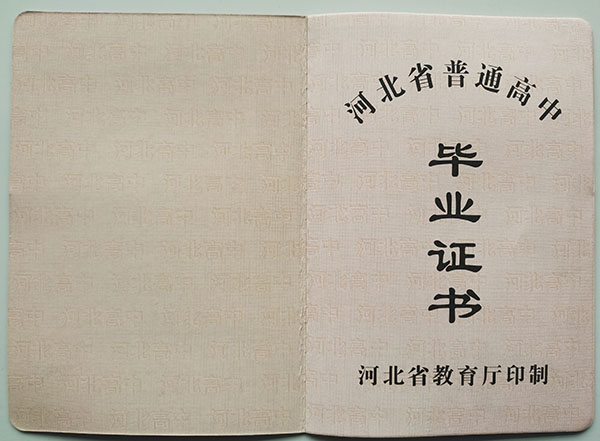 河北省普通高中
毕业证书
河北省教育厅印制